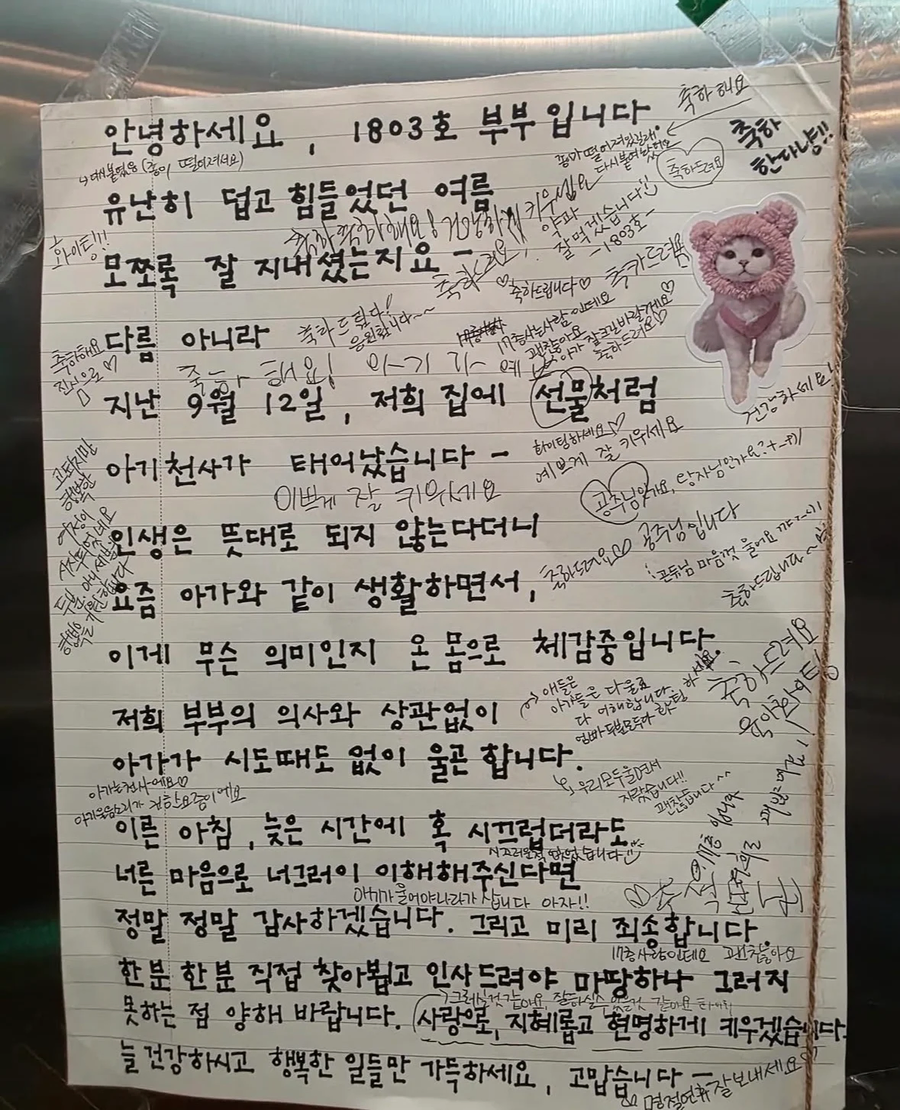 축하해요
안녕하세요, 1803호 부부입니다
축하
한다냥!!
종이 떨어져있길래
다시 붙여놨어요
축하드려요
↳ 다시 붙였음 (종이 떨어져서요)
유난히 덥고 힘들었던 여름
화이팅!!!
축하 축하해요! 건강하게 키우세요
약과
잘먹겠습니다
-1803호-
모쪼록 잘 지내셨는지요-
축하드려요
♡축하드립니다♡
축하드려요
다름 아니라
축하드립니다!
응원합니다~~
17층사는사람인데요
괜찮아요
아가 잘크길바랄게요♡
축하드려요♡
축하해요
진심으로♡
축하해요! 아기가 예
지난 9월 12일, 저희 집에 선물처럼
건강하세요!
화이팅하세요♡
예쁘게 잘 키워세요
아기천사가 태어났습니다-
이쁘게 잘 키워세요
공주님인가요, 왕자님인가요?
고되지만
행복한
여정이
시작되었네요
두분, 아니 세분의
행복을 기원합니다
인생은 뜻대로 되지 않는다더니
축하드려요 공주님입니다
공듀님 마음껏 울어요
축하드립니다~
요즘 아가와 같이 생활하면서,
이게 무슨 의미인지 온 몸으로 체감중입니다.
축하드려요
육아화이팅!
애들은
아가들은 다 울죠
다 이해합니다
엄빠 두분모두다 화팅 하세요.
저희 부부의 의사와 상관없이
아가가 시도때도 없이 울곤 합니다.
↳ 우리모두울면서
자랐습니다!!
괜찮습니다^^
아가는천사에요♡
아기울음소리가 귀한요즘이에요
이른 아침, 늦은 시간에 혹 시끄럽더라도
시끄러운적 없었습니다
너른 마음으로 너그러이 이해해주신다면
아기가울어야나라가삽니다 아자!!
정말 정말 감사하겠습니다. 그리고 미리 죄송합니다
17층사람인데요 괜찮아요
한분 한분 직접 찾아뵙고 인사드려야 마땅하나 그러지
못하는 점 양해 바랍니다. 사랑으로, 지혜롭고 현명하게 키우겠습니다.
늘 건강하시고 행복한 일들만 가득하세요, 고맙습니다-
명절연휴잘보내세요